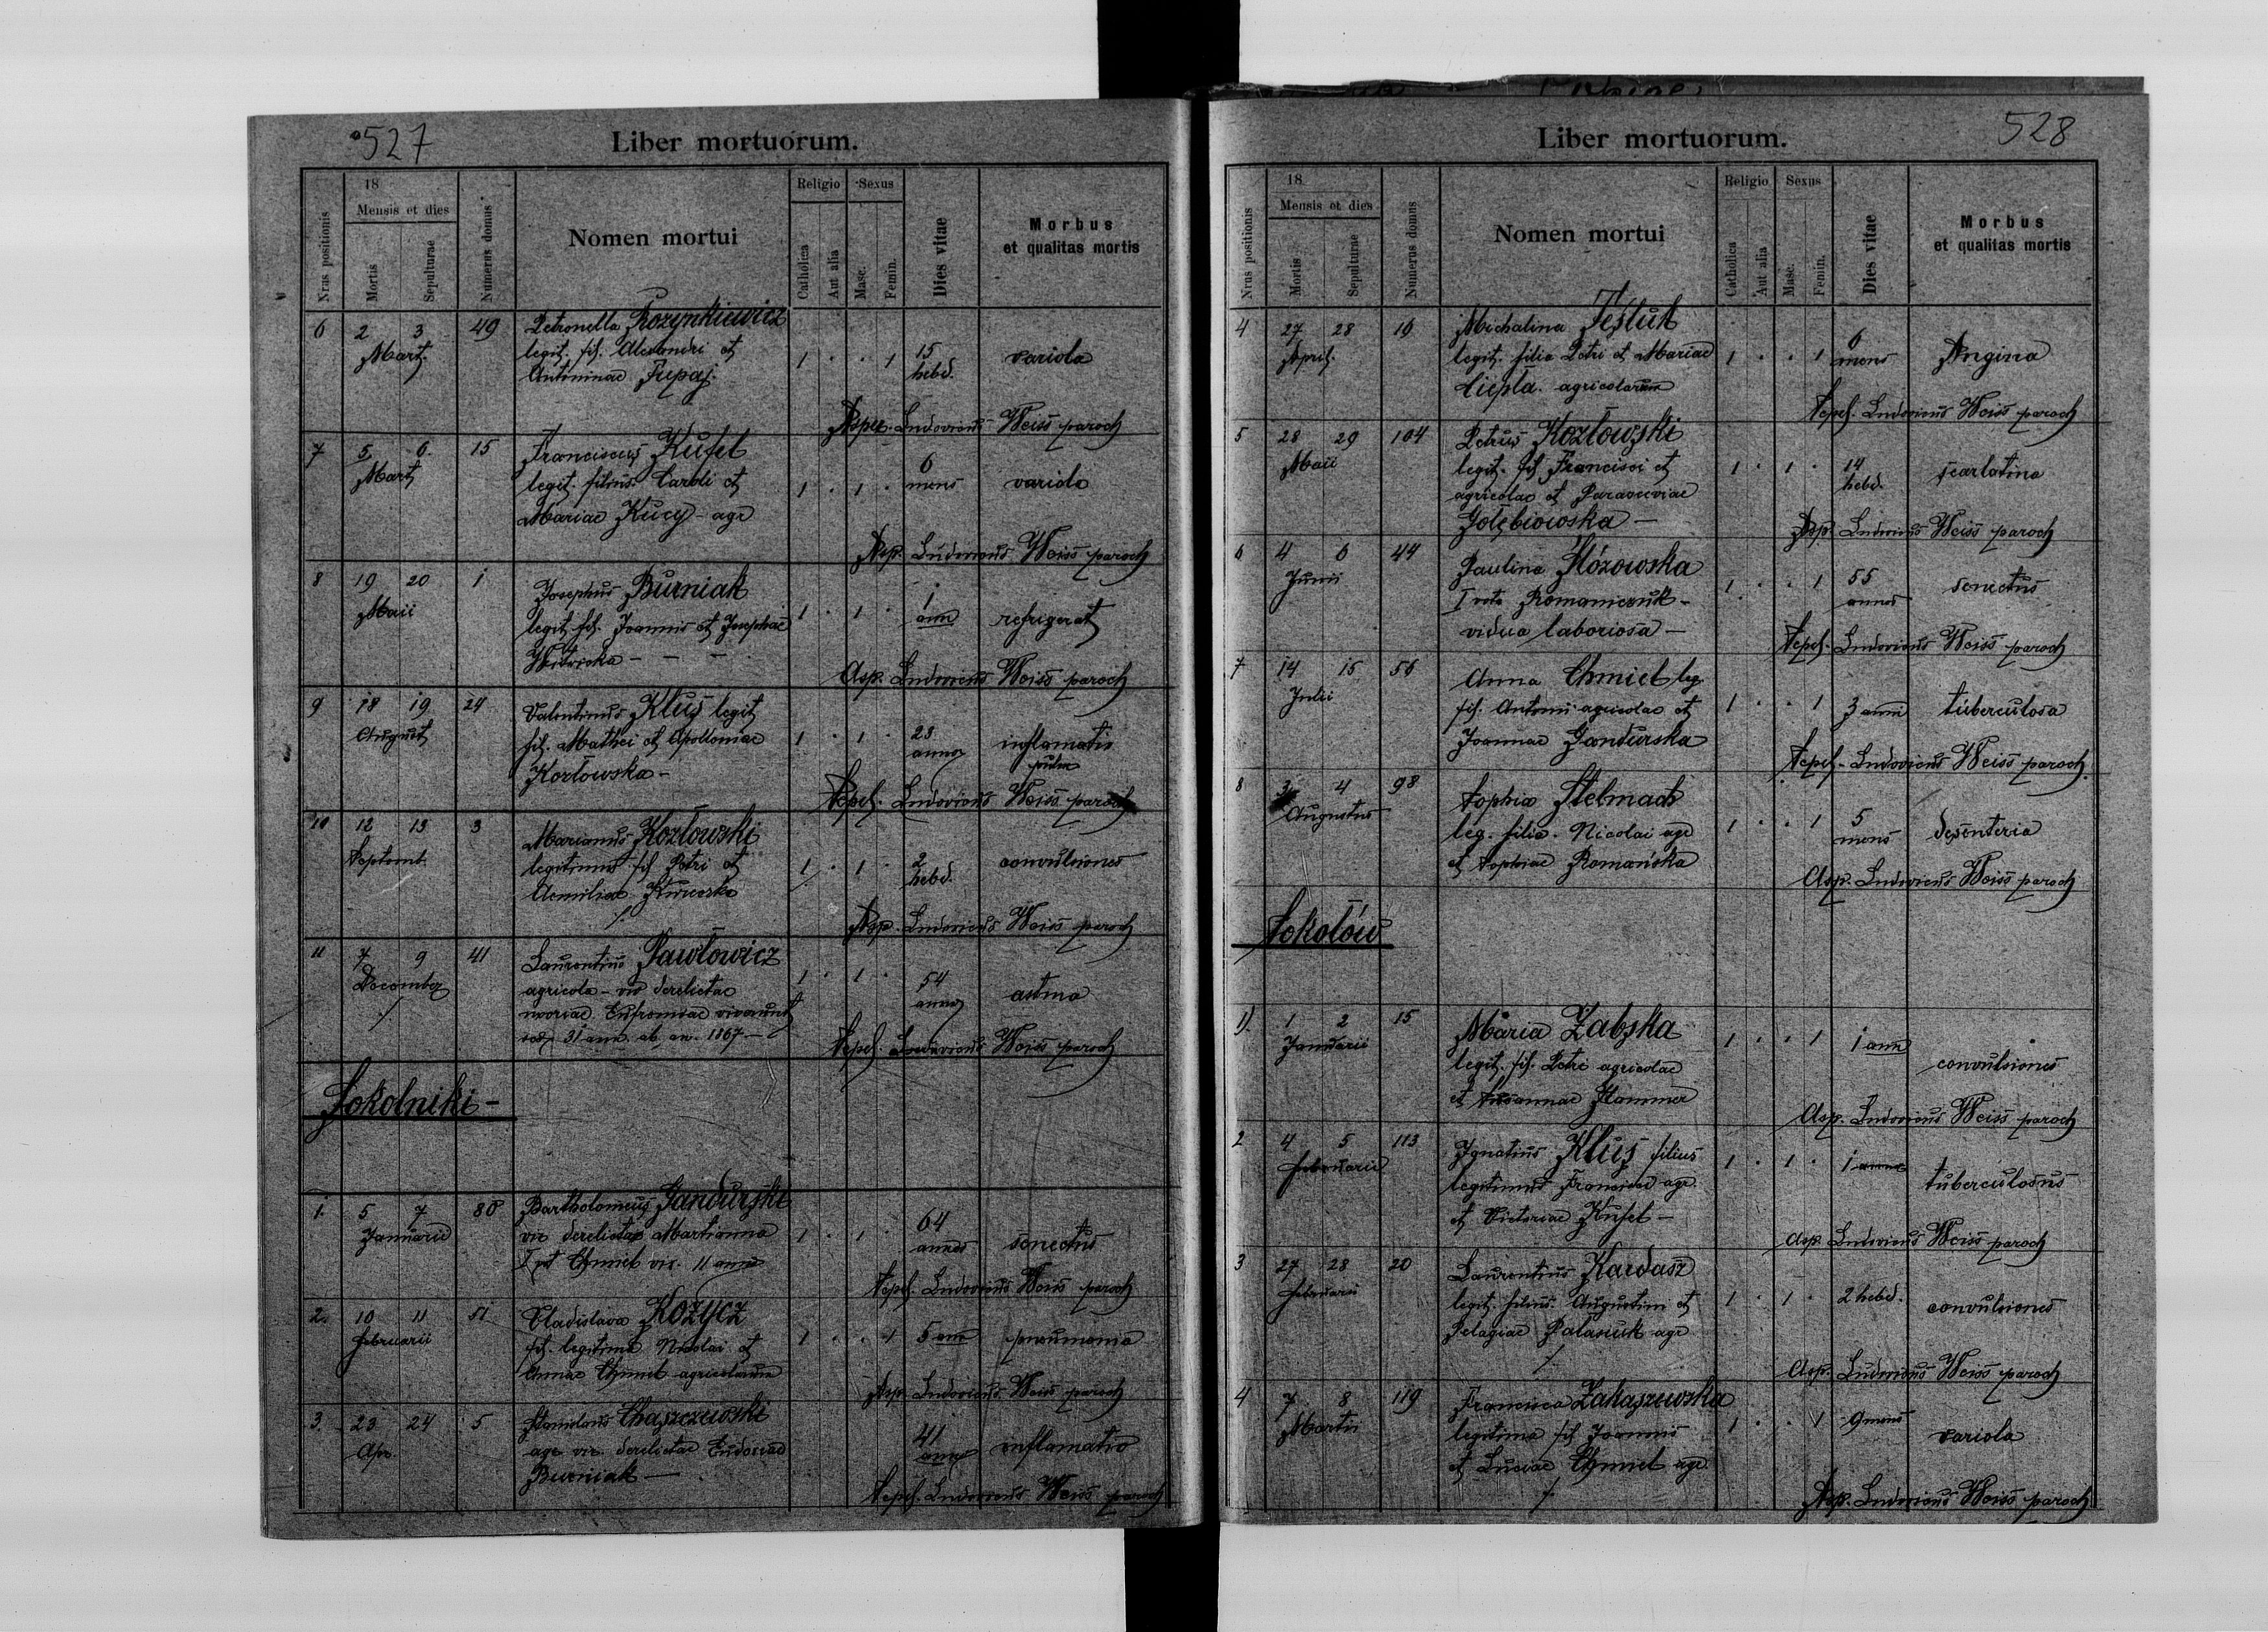 527
Liber mortuorum.
Nrus positionis
18
Mensis et dies
Mortis
Sepulturae
Numerus domus
Nomen mortui
Religio
Catholica
Aut alia
Sexus
Masc.
Femin.
Dies vitae
Morbus
et qualitas mortis
6 2 3 49 Petronella Rozynkiewicz
Mart. legit. fil. Alexandri et 1 · · 1 15 hebd. variola
Antoninae
Ludovicus Weiss paroch
7 5 6. 15 Franciscus Kufel
Mart legit. filius Caroli et 1 · 1 · 6 mens variola
Mariae Kucy - agr
Asp. Ludovicus Weiss paroch
8 19 20 1 Josephus Burniak
Maii legit. fil. Joannis et Josephae 1 · 1 · 1 ann refrigerat
Asp. Ludovicus Weiss paroch
9 18 19 24 Valentinus Kluş legit
August fil. Mathei et Apolloniae 1 · 1 · 23 annor inflamatio
Kozłowska - pulm
Ludovicus Weiss paroch
10 12 13 3 Marianus Kozłowski
Septemb. legitimus fil Petri et 1 · 1 · 2 hebd. convulsiones
Aemiliae
Asp. Ludovicus Weiss paroch
11 7 9 41 Laurentius Pawłowicz
December agricola - vir derelictae 1 · 1 · 54 annor astma
31 ann. ab an. 1867 -
Ludovicus Weiss paroch
Sokolniki -
1. 5 7 80 Bartholomeus Jandurski
Januarii vir derelictae Martianna 1 · 1 · 64 annos senectus
Chmiel vir. 11 anno
Ludovicus Weiss paroch
2. 10 11 51 Vladislava Kozycz
Februarii fil. legitima Nicolai et 1 · · 1 5 ann pneumonia
Annae Chmiel agricolarum
Asp. Ludovicus Weiss paroch
3. 23 24 5 Stanislaus Chaszczewski
Apr. agr vir. derelictae Eudoxiae 41 ann inflamatio
Burniak -
Ludovicus Weiss paroch
528
Liber mortuorum.
Nrus positionis
18
Mensis et dies
Mortis
Sepulturae
Numerus domus
Nomen mortui
Religio
Catholica
Aut alia
Sexus
Masc.
Femin.
Dies vitae
Morbus
et qualitas mortis
4 27 28 16 Michalina Tesluk
April. legit. filia Petri et Mariae 1 · · 1 6 mens Angina
Ciepła. agricolarum
Ludovicus Weiss paroch
5 28 29 104 Petrus Kozłowski
Maii legit. fil Francisci et 1 · 1 · 14 hebd. scarlatina
agricolae et Parasceviae
Gołębiowska -
Asp. Ludovicus Weiss paroch
6 4 6 44 Paulina Kłózowska
Junii I voto Romaniczuk - 1 · · 1 55 annos senectus
vidua laboriosa -
Ludovicus Weiss paroch
7 14 15 56 Anna Chmiel leg.
Julii fil. Antonii agricolae et 1 · · 1 3 anni tuberculosa
Joannae Jandurska
Ludovicus Weiss paroch
8 3 4 98 Sophia Stelmach
Augustus leg. filia. Nicolai agr 1 · · 1 5 mens desenteria
et Sophiae Romańska
Asp. Ludovicus Weiss paroch
Sokołów
1). 1 2 15 Maria Zabska
Januarii legit. fil. Petri agricolae 1 · · 1 1 ann convulsiones
et Susannae Hammer
Asp. Ludovicus Weiss paroch
2 4 5 113 Ignatius Kluş filius
Februarii legitimus Francisci agr. 1 · 1 · 1 anno tuberculosus
et Victoriae Kufel -
Asp. Ludovicus Weiss paroch
3 27 28 20 Laurentius Kardasz
Februarii legit. filius. Augustini et 1 · 1 · 2 hebd. convulsiones
Pelagiae Palasiuk agr
Asp. Ludovicus Weiss paroch
4 7 8 119 Francisca Zakaszewska
Martii legitima fil Joannis 1 · · 1 9 mens variola
et Luciae Chmiel agr.
Asp. Ludovicus Weiss paroch